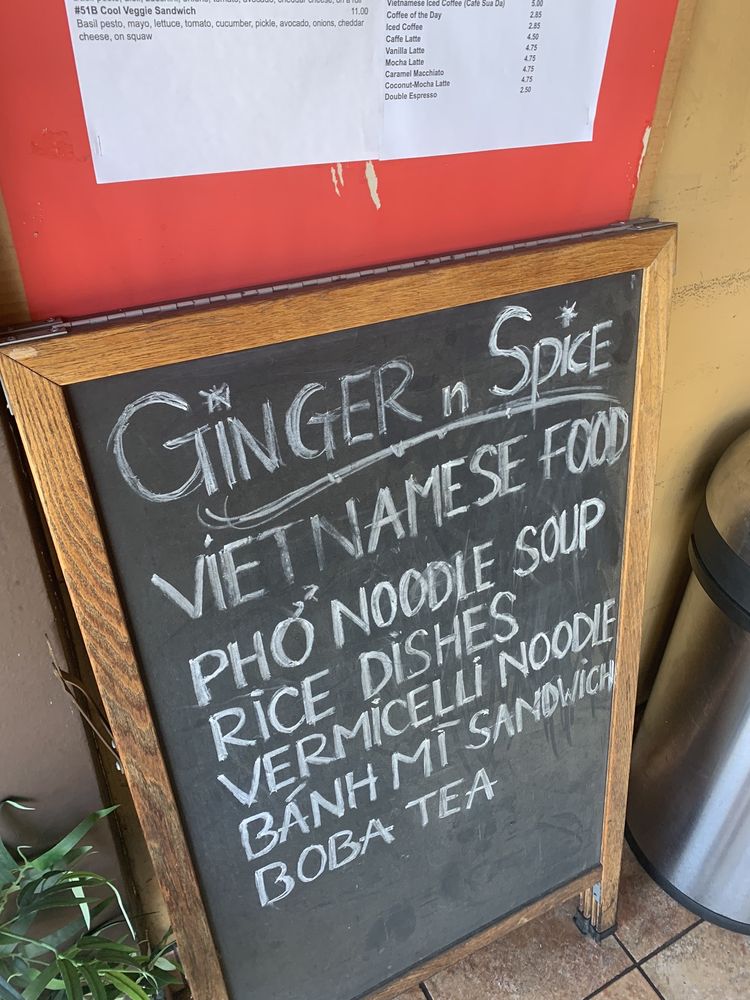 #51B Cool Veggie Sandwich 11.00
Basil pesto, mayo, lettuce, tomato, cucumber, pickle, avocado, onions, cheddar
cheese, on squaw
Vietnamese Iced Coffee (Café Sua Da) 5.00
Coffee of the Day 2.85
Iced Coffee 2.85
Caffe Latte 4.50
Vanilla Latte 4.75
Mocha Latte 4.75
Caramel Macchiato 4.75
Coconut-Mocha Latte 4.75
Double Espresso 2.50
GINGER n SPICE
VIETNAMESE FOOD
PHỞ NOODLE SOUP
RICE DISHES
VERMICELLI NOODLE
BÁNH MÌ SANDWICH
BOBA TEA